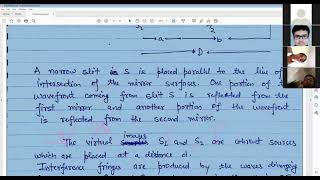 S₁ S₂
a b
D
A narrow slit is S is placed parallel to the line of
intersection of the mirror surfaces. One portion of
wavefront coming from slit S is reflected from the
first mirror and another portion of the wavefront
is reflected from the second mirror.
The virtual images S₁ and S₂ are coherent sources
which are placed at a distance d.
Interference fringes are produced by the waves diverging